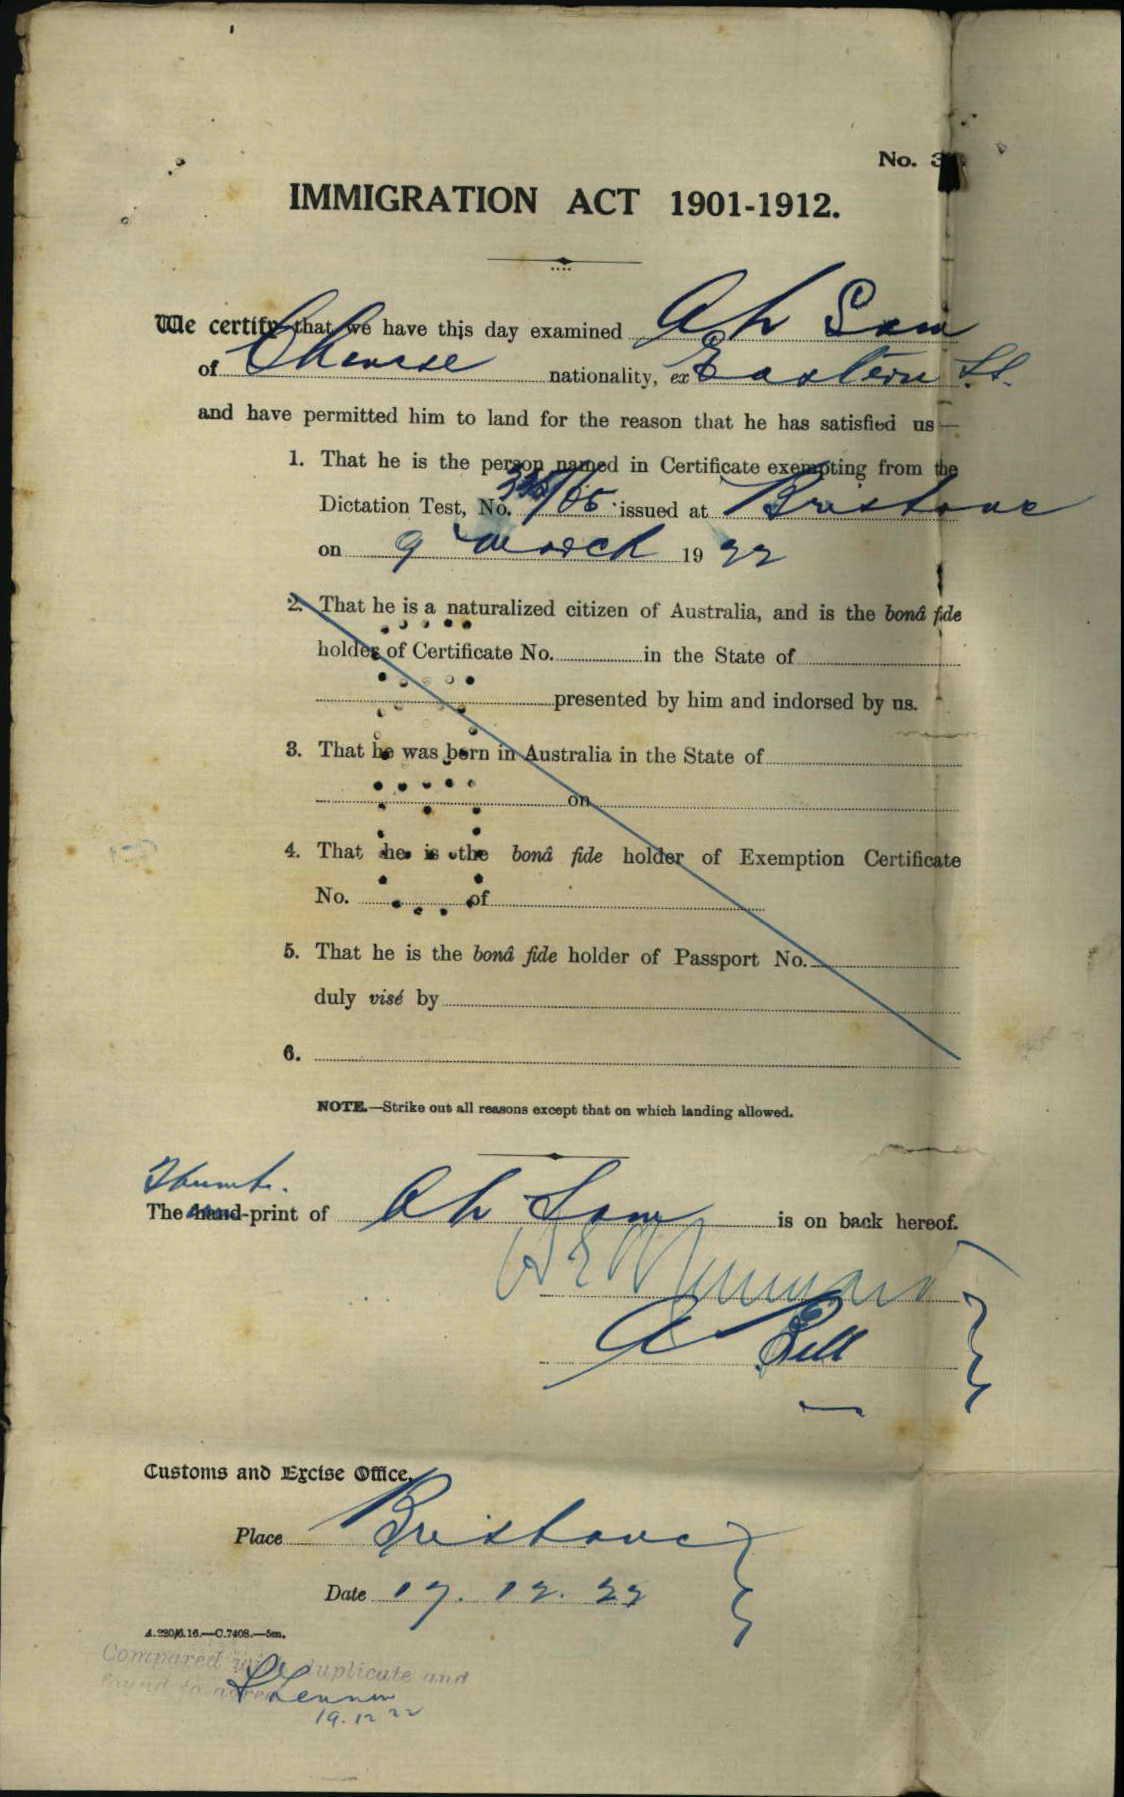 No. 3
IMMIGRATION ACT 1901-1912.
We certify that we have this day examined Ah Sam
of Chinese nationality, ex Eastern S.S.
and have permitted him to land for the reason that he has satisfied us—
1. That he is the person named in Certificate exempting from the
Dictation Test, No. /05 issued at Brisbane
on 9 March 1922
2. That he is a naturalized citizen of Australia, and is the bonâ fide
holder of Certificate No. in the State of
presented by him and indorsed by us.
3. That he was born in Australia in the State of
on
4. That he is the bonâ fide holder of Exemption Certificate
No. of
5. That he is the bonâ fide holder of Passport No.
duly visé by
6.
NOTE.—Strike out all reasons except that on which landing allowed.
Thumb.
The hand-print of Ah Sam is on back hereof.
A Bell
Customs and Excise Office,
Place Brisbane
Date 17.12.22
A.220/6.16.—C.7408.—5m.
Compared with duplicate and
found to agree
19.12 22